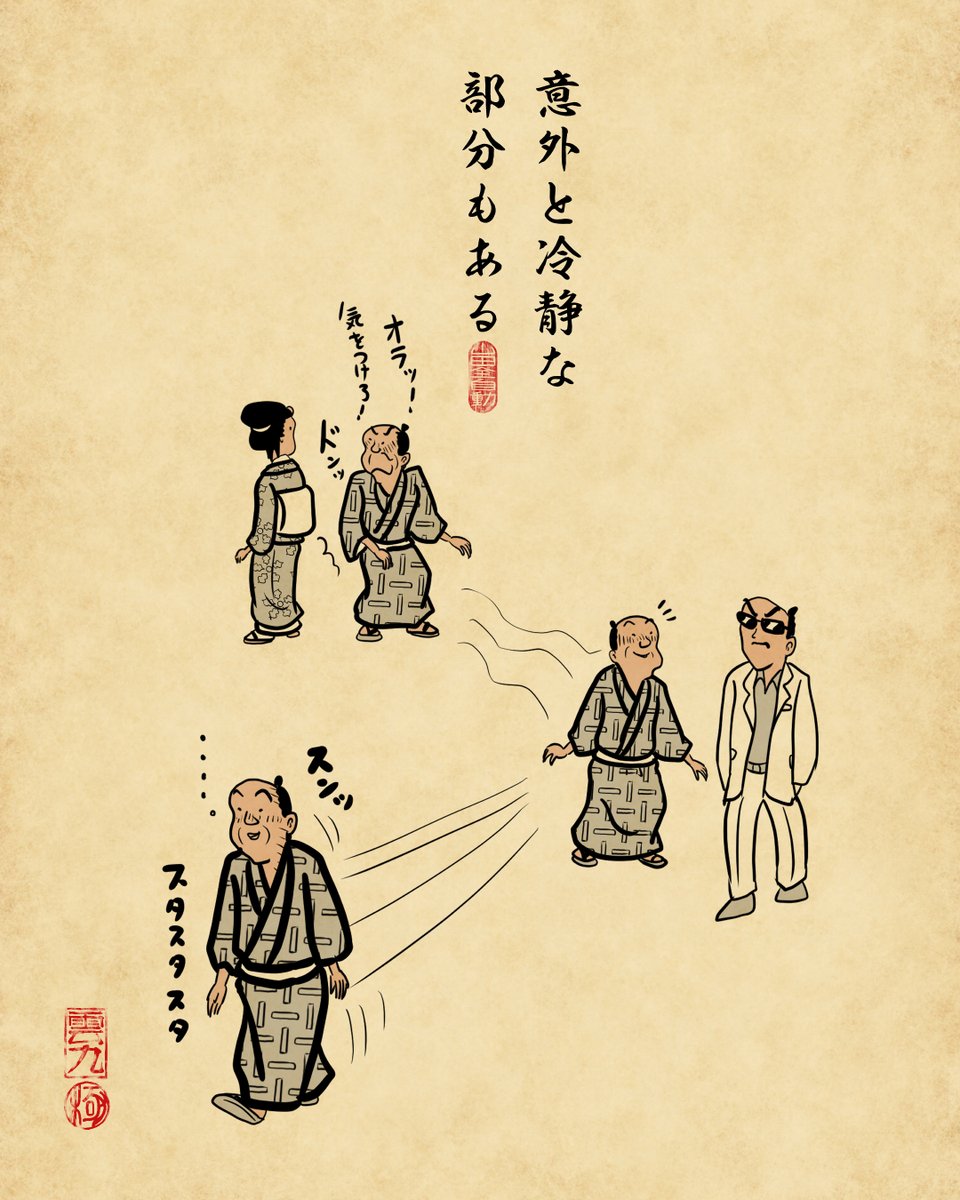 意外と冷静な
部分もある
オラッー!
気をつけろ!
ドンッ
スンッ
・・・・。
スタスタスタ
雲九
極